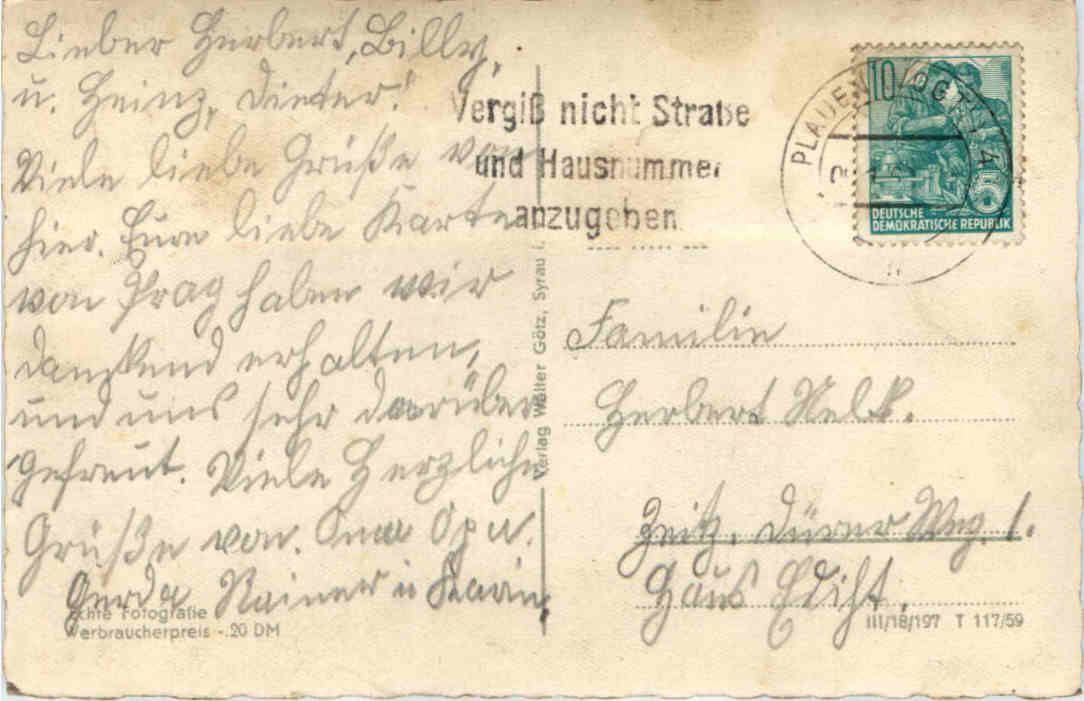 Lieber Herbert, Billy,
u. Heinz, Dieter!
Viele liebe Grüße von
hier. Eure liebe Karte
von Prag haben wir
dankend erhalten,
und uns sehr darüber
gefreut. Viele Herzliche
Grüße von. Oma Opa u.
Gerda Rainer u Karin,
Echte Fotografie
Verbraucherpreis -.20 DM
Verlag Walter Götz, Syrau i.
Vergiß nicht Straße
und Hausnummer
anzugeben
PLAUEN (VOGTL) 4
10
DEUTSCHE
DEMOKRATISCHE REPUBLIK
Familie
Herbert
Zeitz, Dürer Weg. 1.
Haus
III/18/197 T 117/59